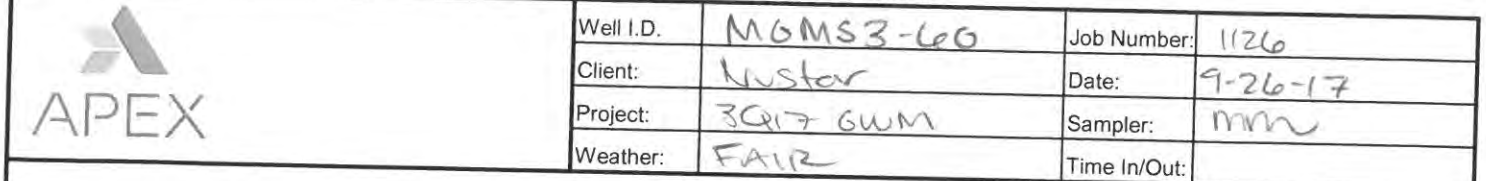 APEX
Well I.D. MGMS3-60 Job Number: 1126
Client: Nustar Date: 9-26-17
Project: 3Q17 GWM Sampler: mm
Weather: FAIR Time In/Out: